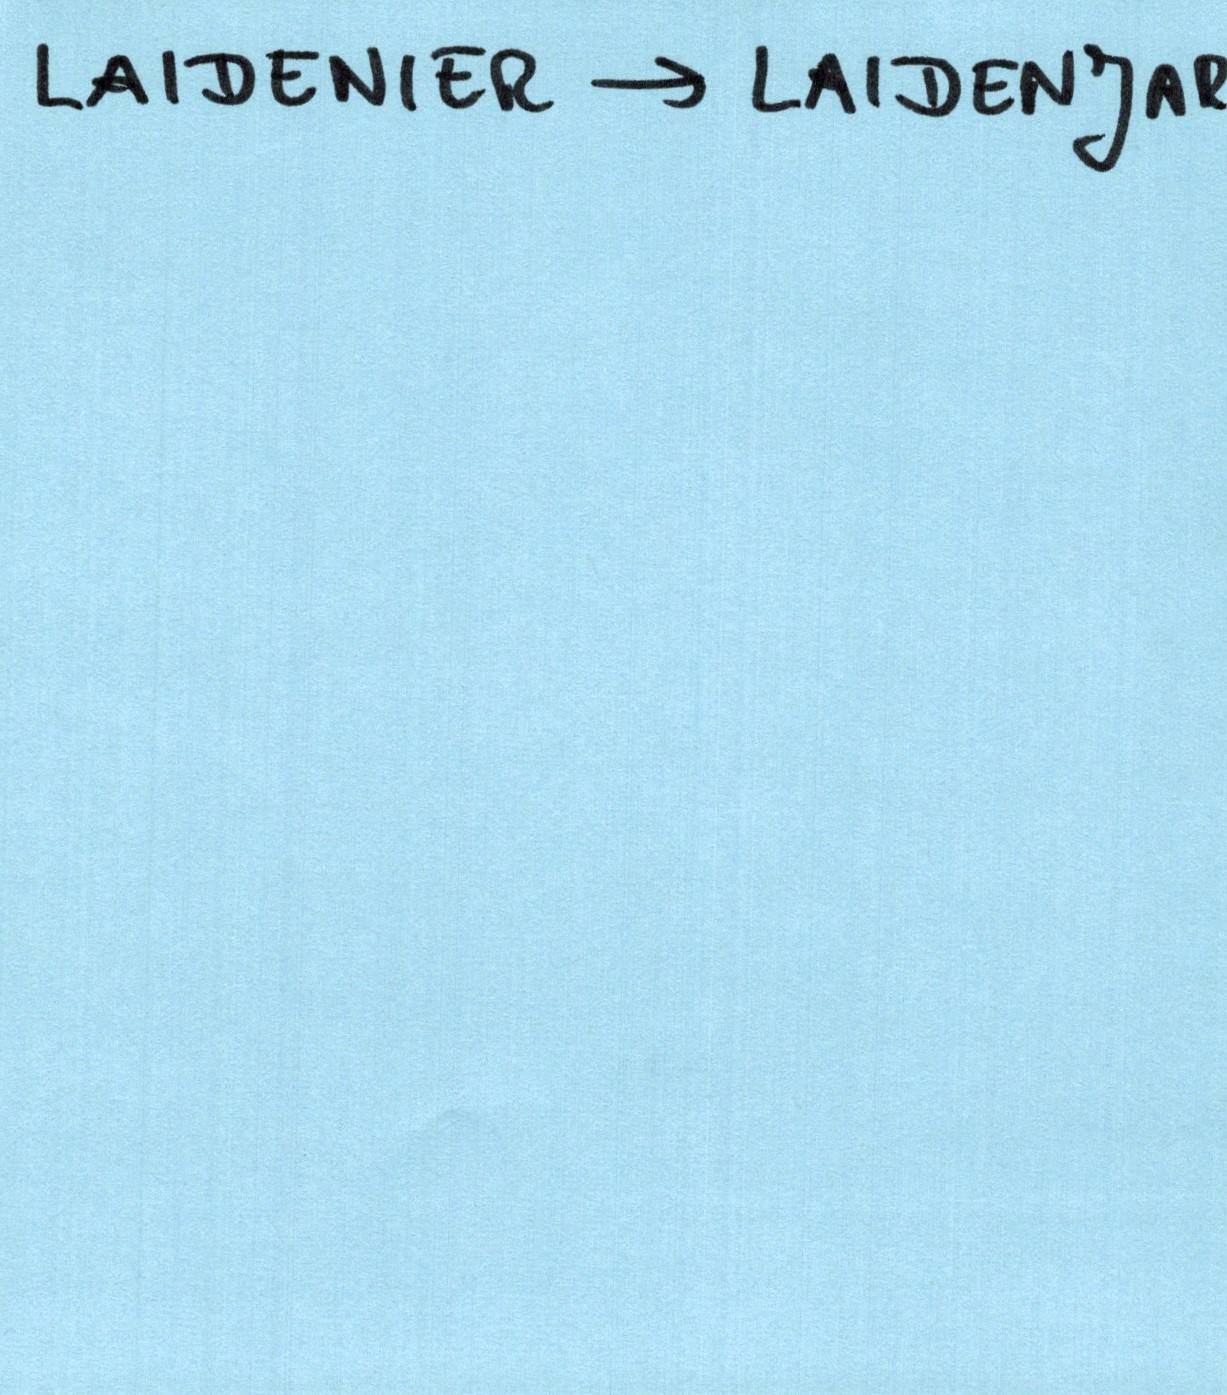 LAIDENIER → LAIDENJAR